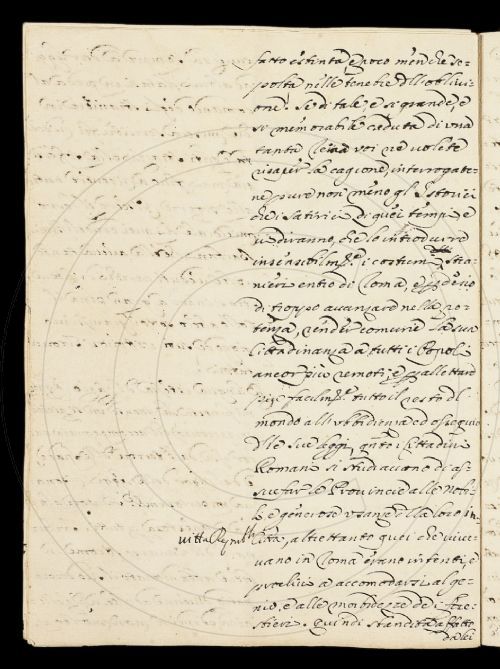 fatto estinta, e poco men che se-
polta nelle tenebre dell' oblivi-
one. Se di tale e sì grande, e
sì memorabile caduta di una
tanta voi ne volete
saper la cagione, interrogate-
ne pure non meno gl' Istorici
che i Satirici di quei tempi, e
udiranno, che lo introdurre
i costumi stra-
nieri entro di Roma, e
di troppo avanzare nella po-
tenza, render comune la sua
Cittadinanza a tutti i Popoli
ancor più remoti, e allettare
più tutto il resto del
mondo all' ubbidienza ed ossequio
delle sue leggi, i Cittadini
Romani si studiavano di as-
suefar le Provincie alle nobi-
li e generose usanze della loro
Città, altrettanto quei che vive-
vano in Roma erano intenti, e
proclivi a accomodarsi al ge-
nio, e alle morbidezze dei fore-
stieri. Quindi affatto
da lei